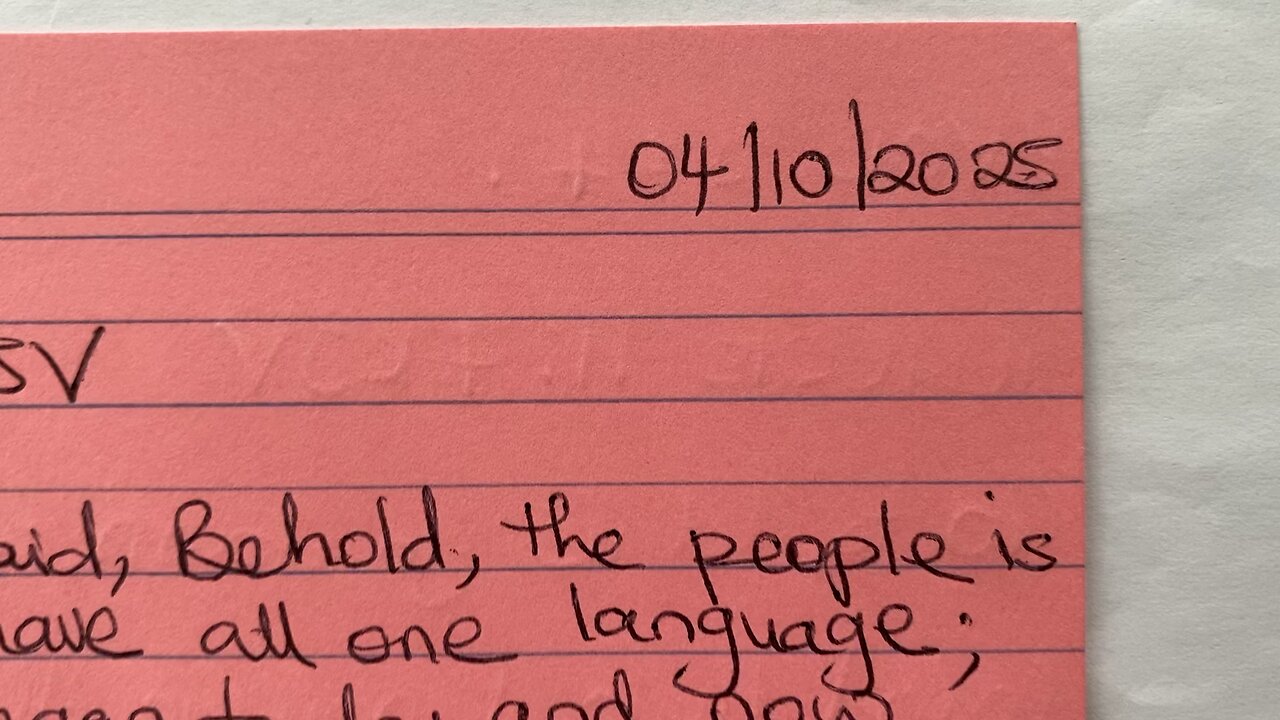 04/10/2025
SV
aid, Behold, the people is
have all one language;
and now